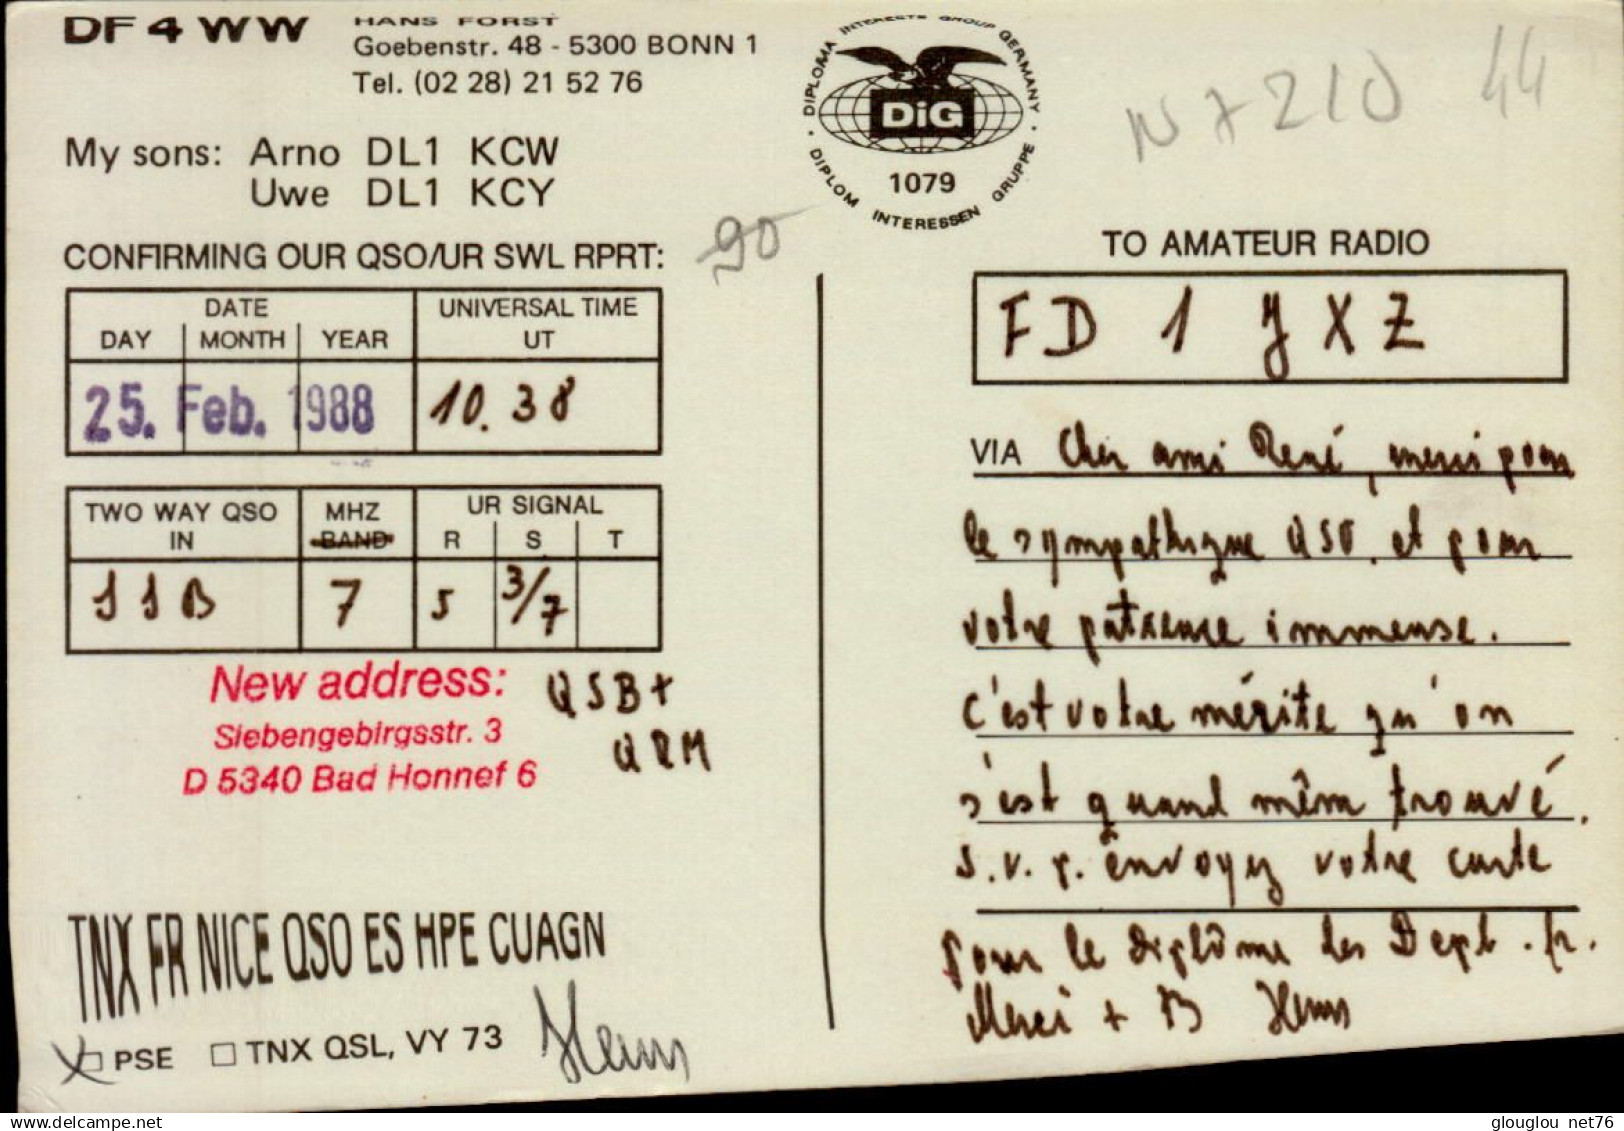 DF 4 WW
HANS FORST
Goebenstr. 48 - 5300 BONN 1
Tel. (02 28) 21 52 76
My sons: Arno DL1 KCW
Uwe DL1 KCY
DIPLOMA INTERESTS GROUP GERMANY
DIG
1079
DIPLOM INTERESSEN GRUPPE
N 7210
44
90
CONFIRMING OUR QSO/UR SWL RPRT:
DATE UNIVERSAL TIME
DAY MONTH YEAR UT
25. Feb. 1988 10.38
TWO WAY QSO MHZ UR SIGNAL
IN BAND R S T
SSB 7 5 3/7
New address:
Siebengebirgsstr. 3
D 5340 Bad Honnef 6
QSB +
QRM
TNX FR NICE QSO ES HPE CUAGN
PSE TNX QSL, VY 73 Hans
TO AMATEUR RADIO
FD 1 YXZ
VIA Cher ami René, merci pour
le sympathique QSO, et pour
votre patience immense.
c'est votre mérite qu'on
s'est quand même trouvé.
s.v.p. envoyez votre carte
pour le diplôme des Dept. fr.
Merci + 73 Hans
glouglou net76